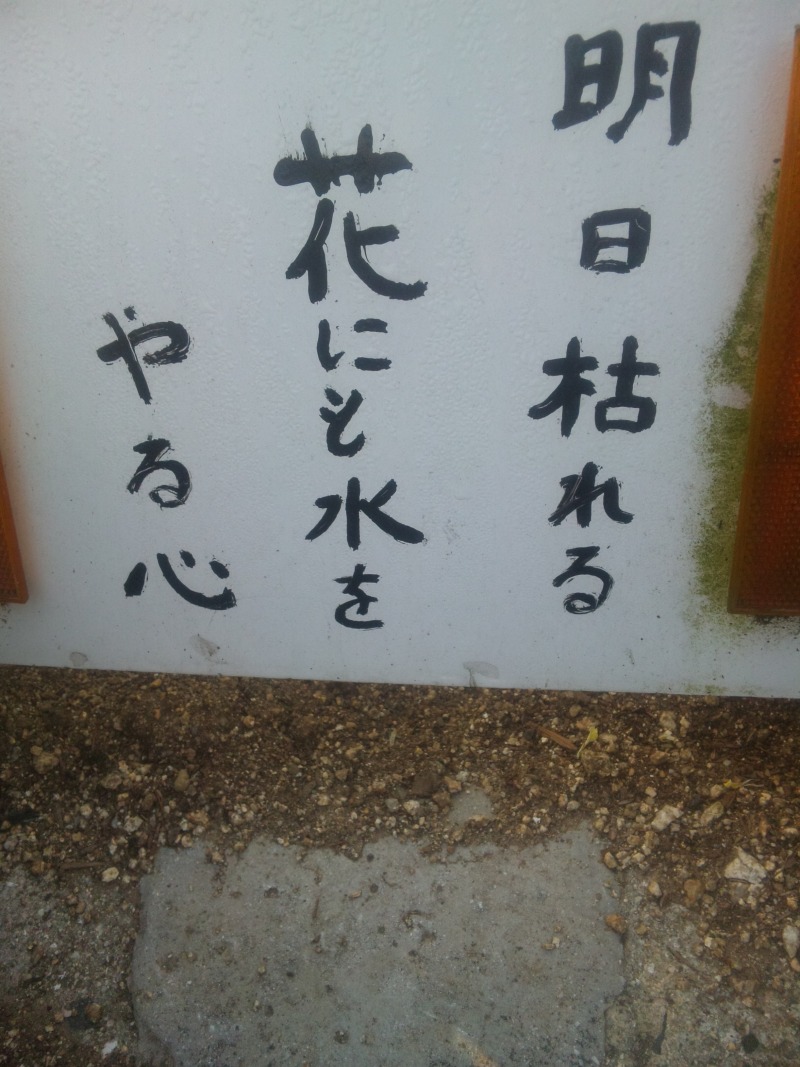 明日枯れる
花にも水を
やる心